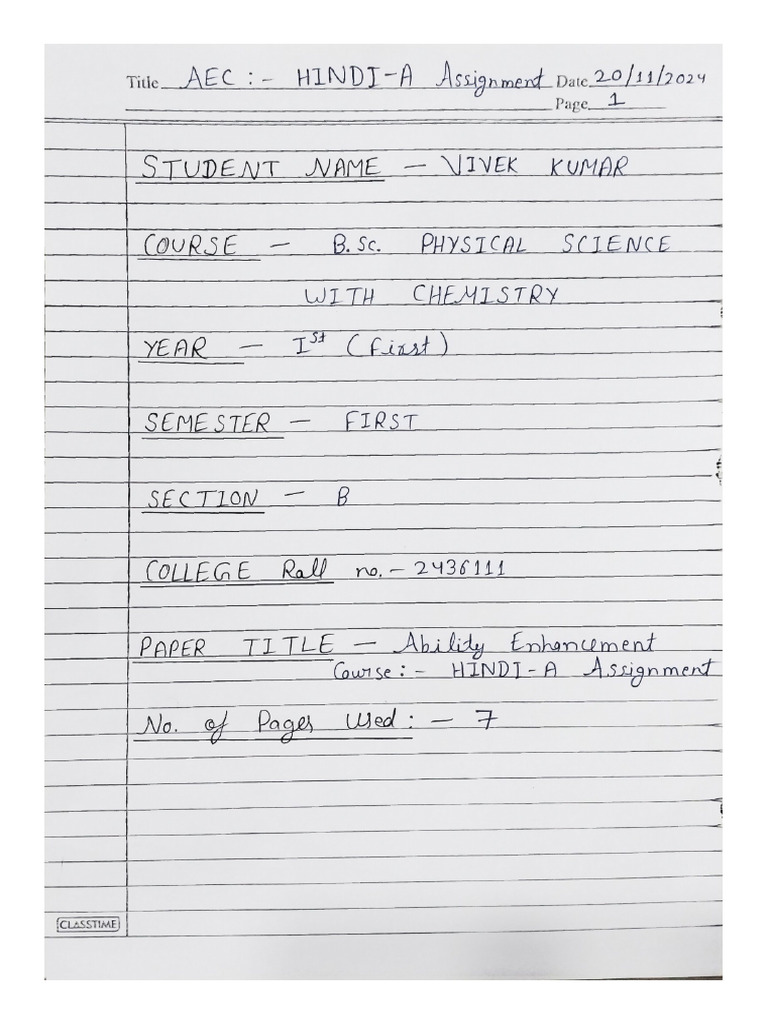 Title AEC :- HINDI-A Assignment Date 20/11/2024
Page 1
STUDENT NAME - VIVEK KUMAR
COURSE - B.Sc. PHYSICAL SCIENCE
WITH CHEMISTRY
YEAR - Ist (First)
SEMESTER - FIRST
SECTION - B
COLLEGE Roll no. - 2436111
PAPER TITLE - Ability Enhancement
Course :- HINDI-A Assignment
No. of Pages Used : - 7
CLASSTIME